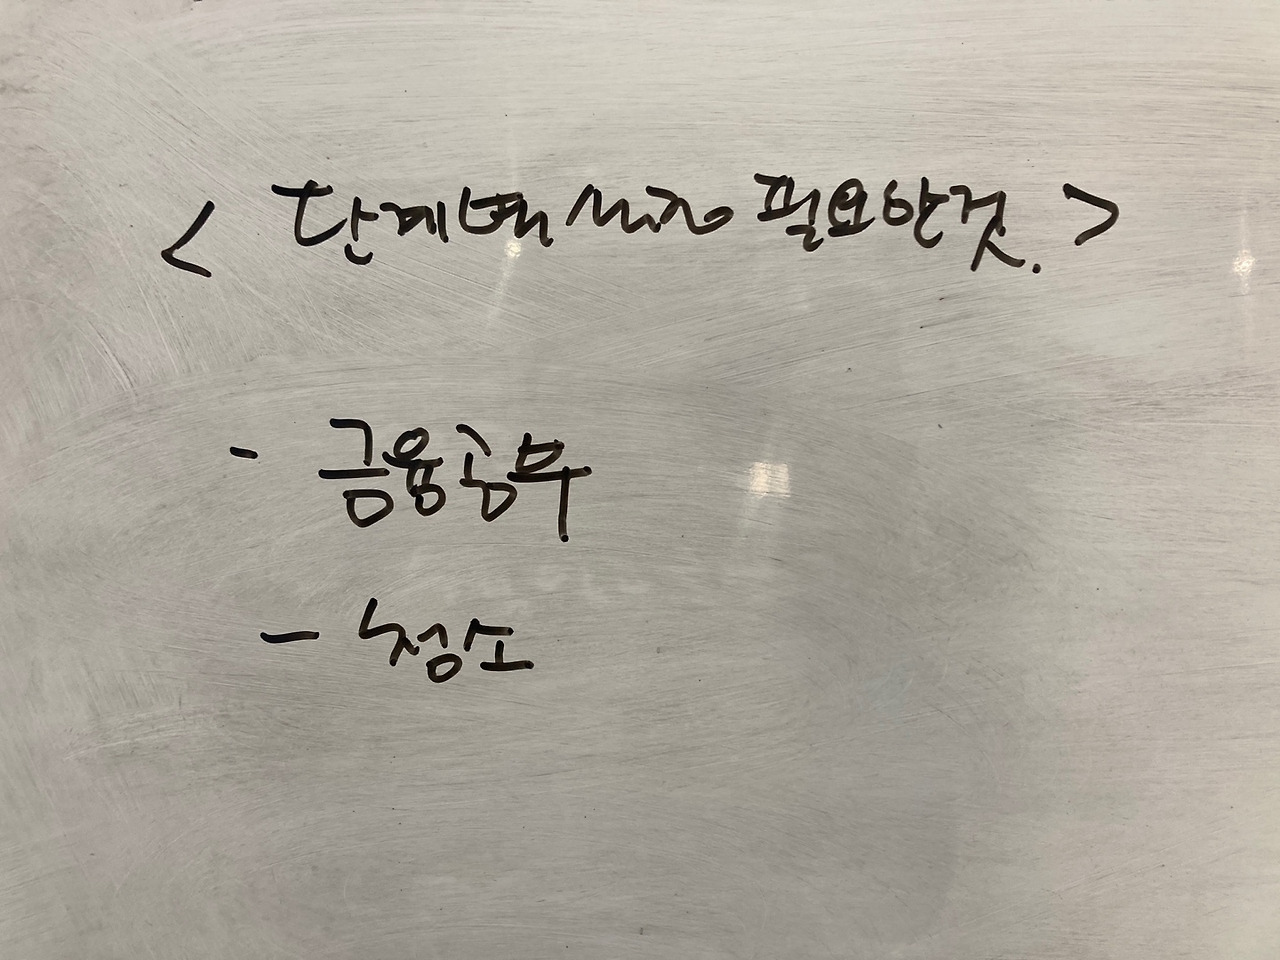 < 단계별 필요한것. >
- 금융공부
- 청소